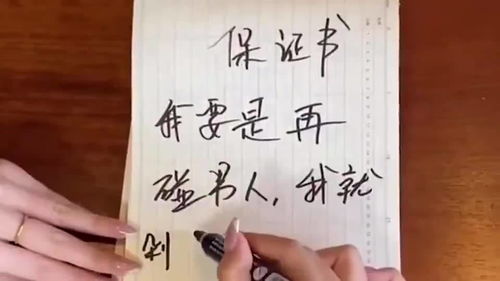 保证书
我要是再
碰男人，我就
剁